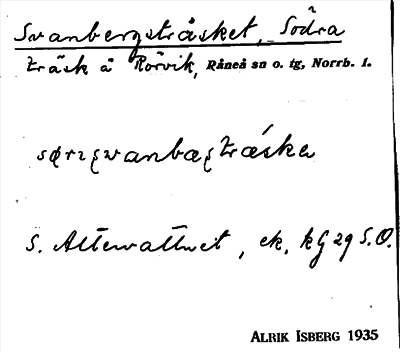 Svanbergsträsket, Södra
träsk å Rörvik, Råneå sn o. tg, Norrb. l.
S. Altervattnet, ek. kG 29 S.O.
ALRIK ISBERG 1935